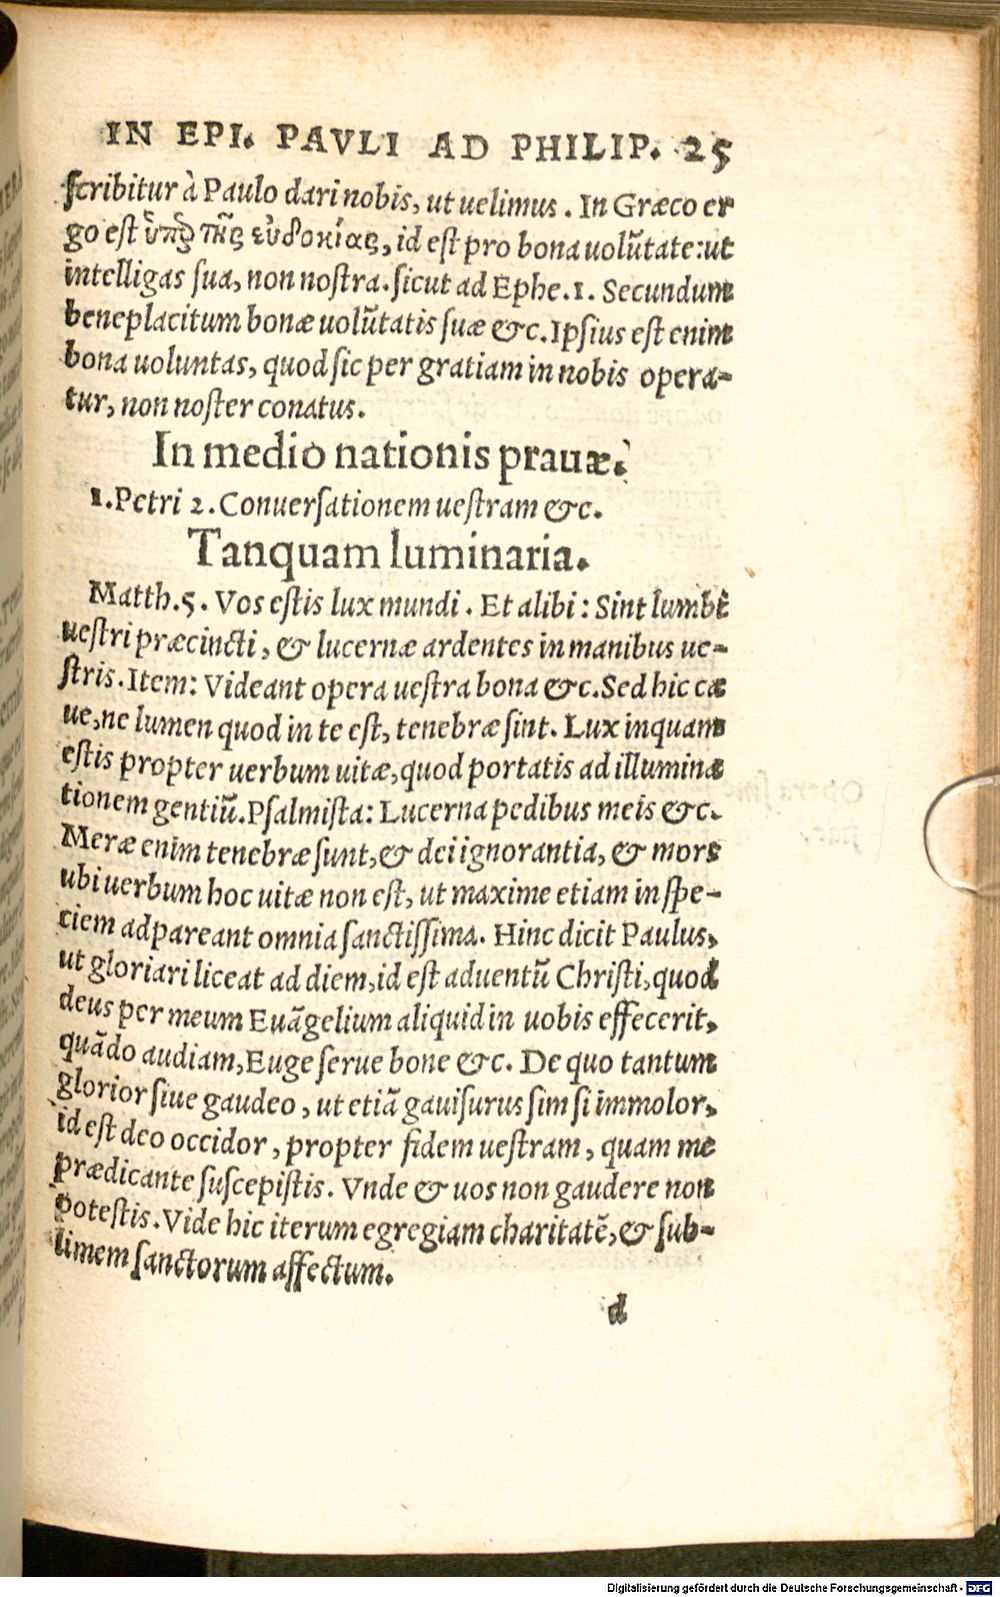 IN EPI. PAVLI AD PHILIP. 25
scribitur à Paulo dari nobis, ut uelimus. In Græco er
go est ὑπὲρ τῆς εὐδοκίας, id est pro bona uolūtate: ut
intelligas sua, non nostra. sicut ad Ephe. 1. Secundum
beneplacitum bonæ uolūtatis suæ &c. Ipsius est enim
bona uoluntas, quod sic per gratiam in nobis opera-
tur, non noster conatus.
In medio nationis prauæ.
1. Petri 2. Conuersationem uestram &c.
Tanquam luminaria.
Matth. 5. Vos estis lux mundi. Et alibi: Sint lumbi
uestri præcincti, & lucernæ ardentes in manibus ue-
stris. Item: Videant opera uestra bona &c. Sed hic ca
ue, ne lumen quod in te est, tenebræ sint. Lux inquam
estis propter uerbum uitæ, quod portatis ad illumina
tionem gentiū. Psalmista: Lucerna pedibus meis &c.
Meræ enim tenebræ sunt, & dei ignorantia, & mors
ubi uerbum hoc uitæ non est, ut maxime etiam in spe-
ciem adpareant omnia sanctissima. Hinc dicit Paulus,
ut gloriari liceat ad diem, id est aduentū Christi, quod
deus per meum Euāgelium aliquid in uobis effecerit,
quādo audiam, Euge serue bone &c. De quo tantum
glorior siue gaudeo, ut etiā gauisurus sim si immolor,
id est deo occidor, propter fidem uestram, quam me
prædicante suscepistis. Vnde & uos non gaudere non
potestis. Vide hic iterum egregiam charitatē, & sub-
limem sanctorum affectum.
d
Digitalisierung gefördert durch die Deutsche Forschungsgemeinschaft - DFG